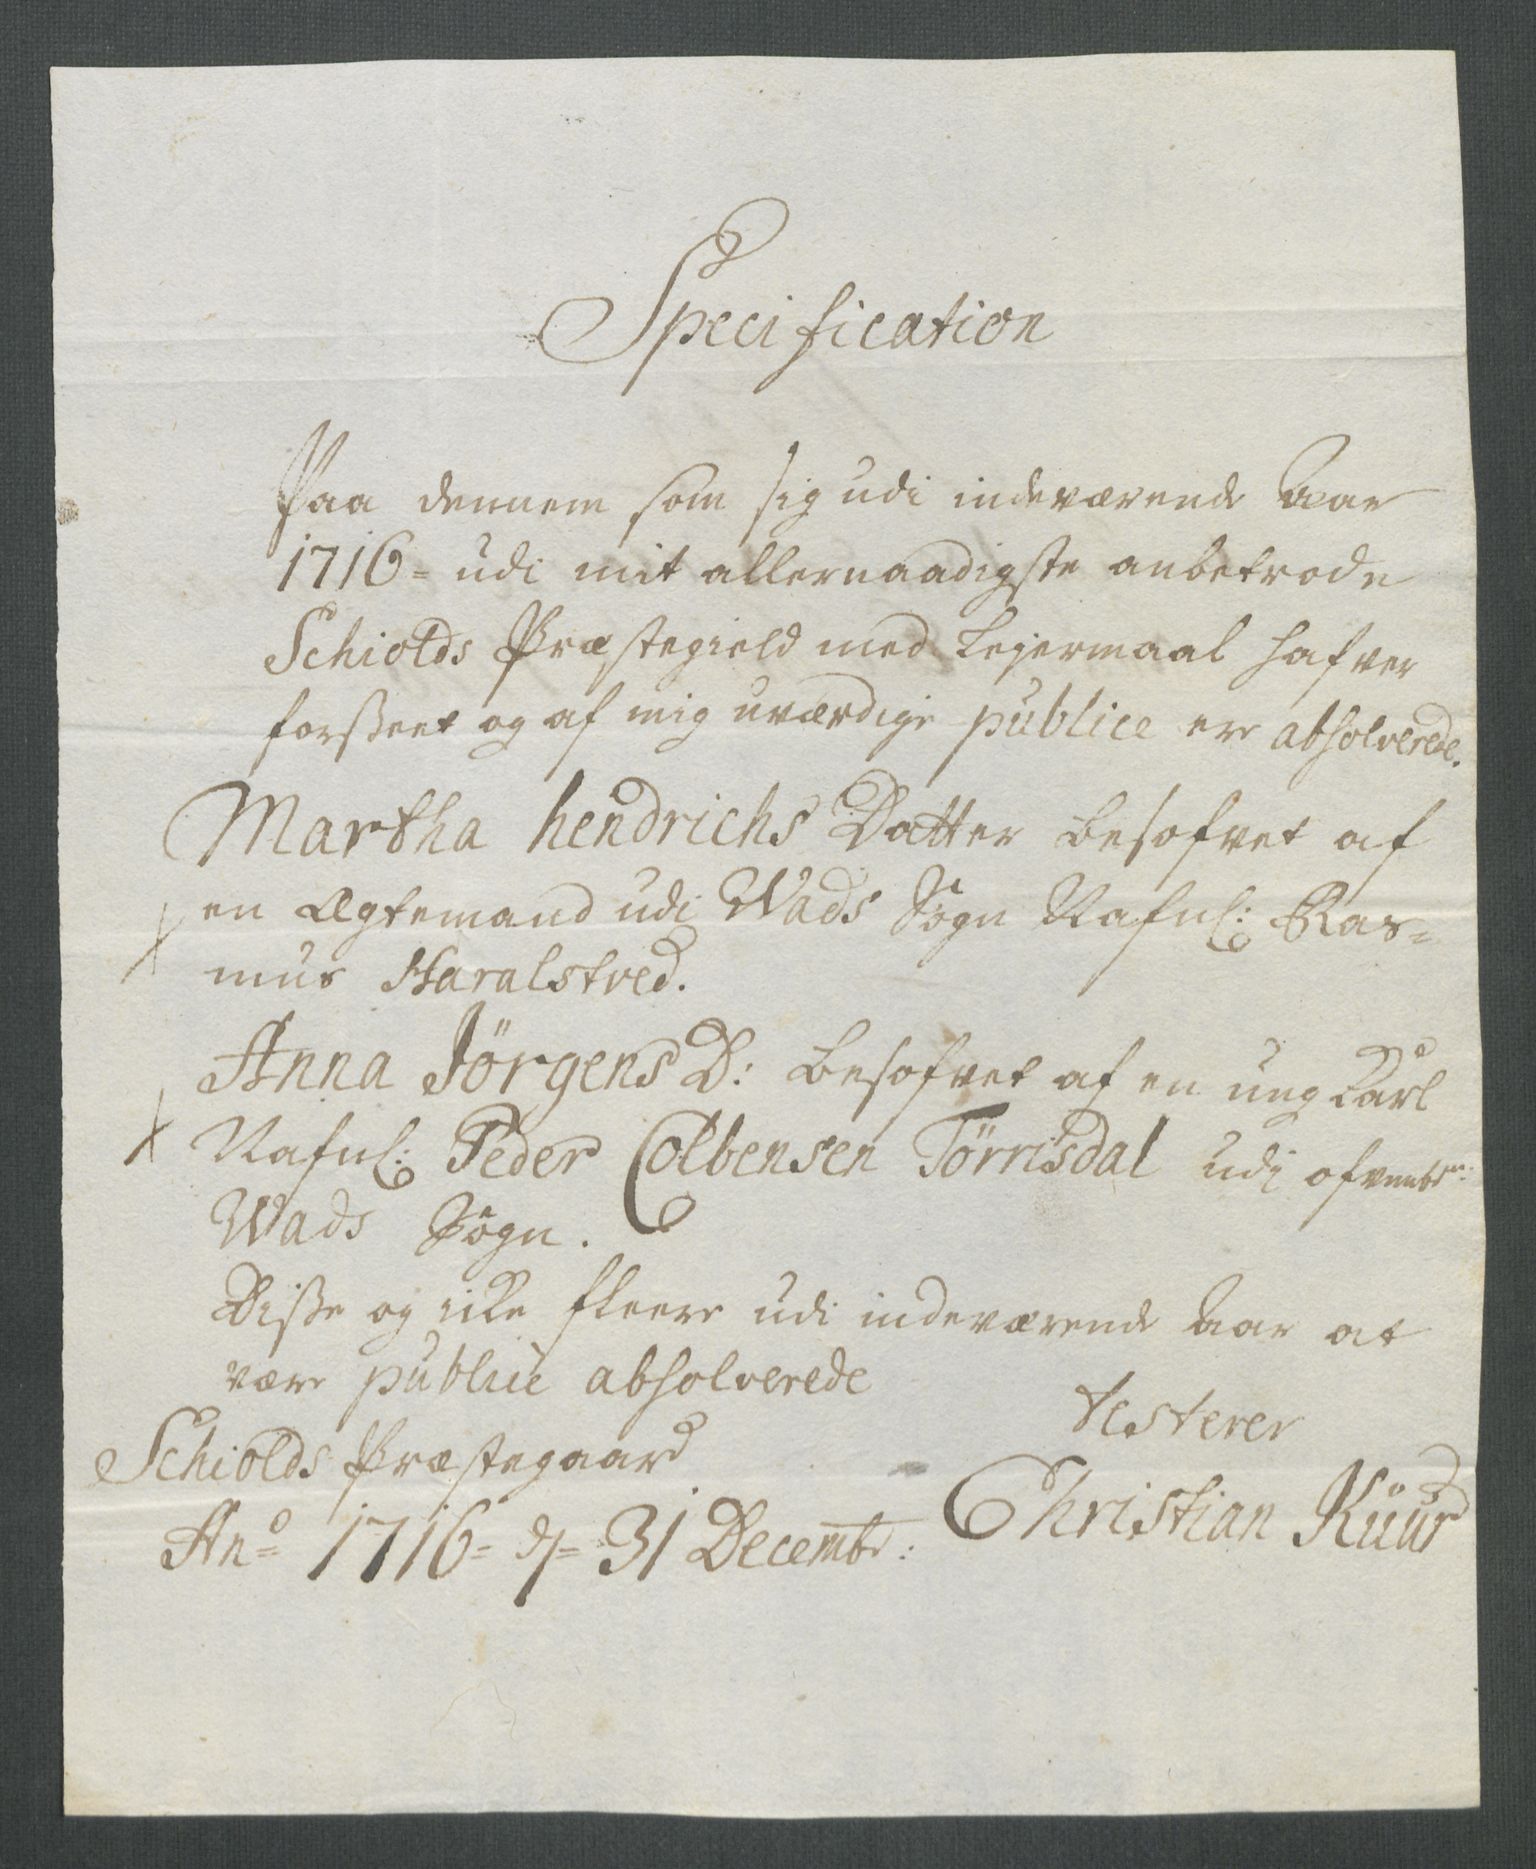 Specification
Paa dennem som sig udi indeværende Aar
1716 = udi mit allernaadigste anbetrode
Schiolds Præstegield med Lejermaal hafver
forsseet og af mig uværdige publice ere absolverede.
Martha hendrichs Datter besofvet af
en Ægtemand udi Wads Sogn Nafnl: Ras=
mus Haralstved.
Anna Jörgens D: besofvet af en ung Karl
Nafnl: Peder Colbensen Törrisdal udi
Wads Sogn.
Disse og icke fleere udi indeværende Aar at
være publice absolverede
testerer
Schiolds Præstegaard
Christian Kuur
Ano 1716 = d = 31 Decembr: